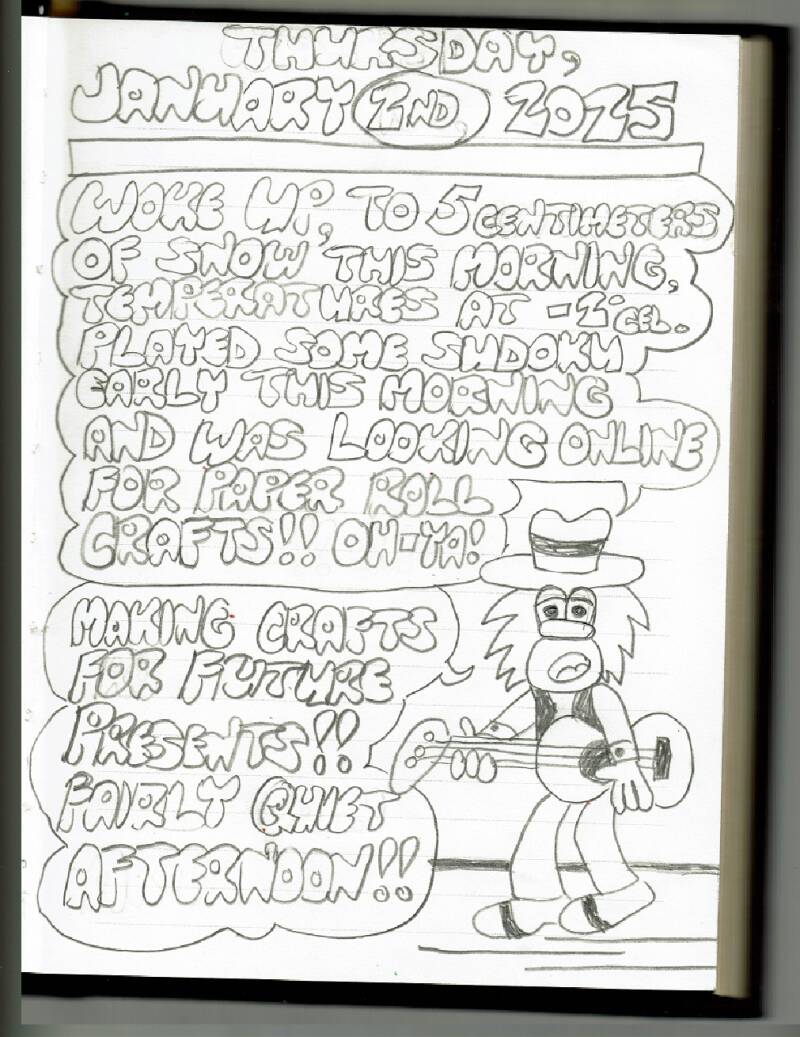 THURSDAY,
JANUARY 2ND, 2025
WOKE UP, TO 5 CENTIMETERS
OF SNOW THIS MORNING,
TEMPERATURES AT -2° CEL.
PLAYED SOME SUDOKU
EARLY THIS MORNING
AND WAS LOOKING ONLINE
FOR PAPER ROLL
CRAFTS!! OH-YA!
MAKING CRAFTS
FOR FUTURE
PRESENTS!!
FAIRLY QUIET
AFTERNOON!!